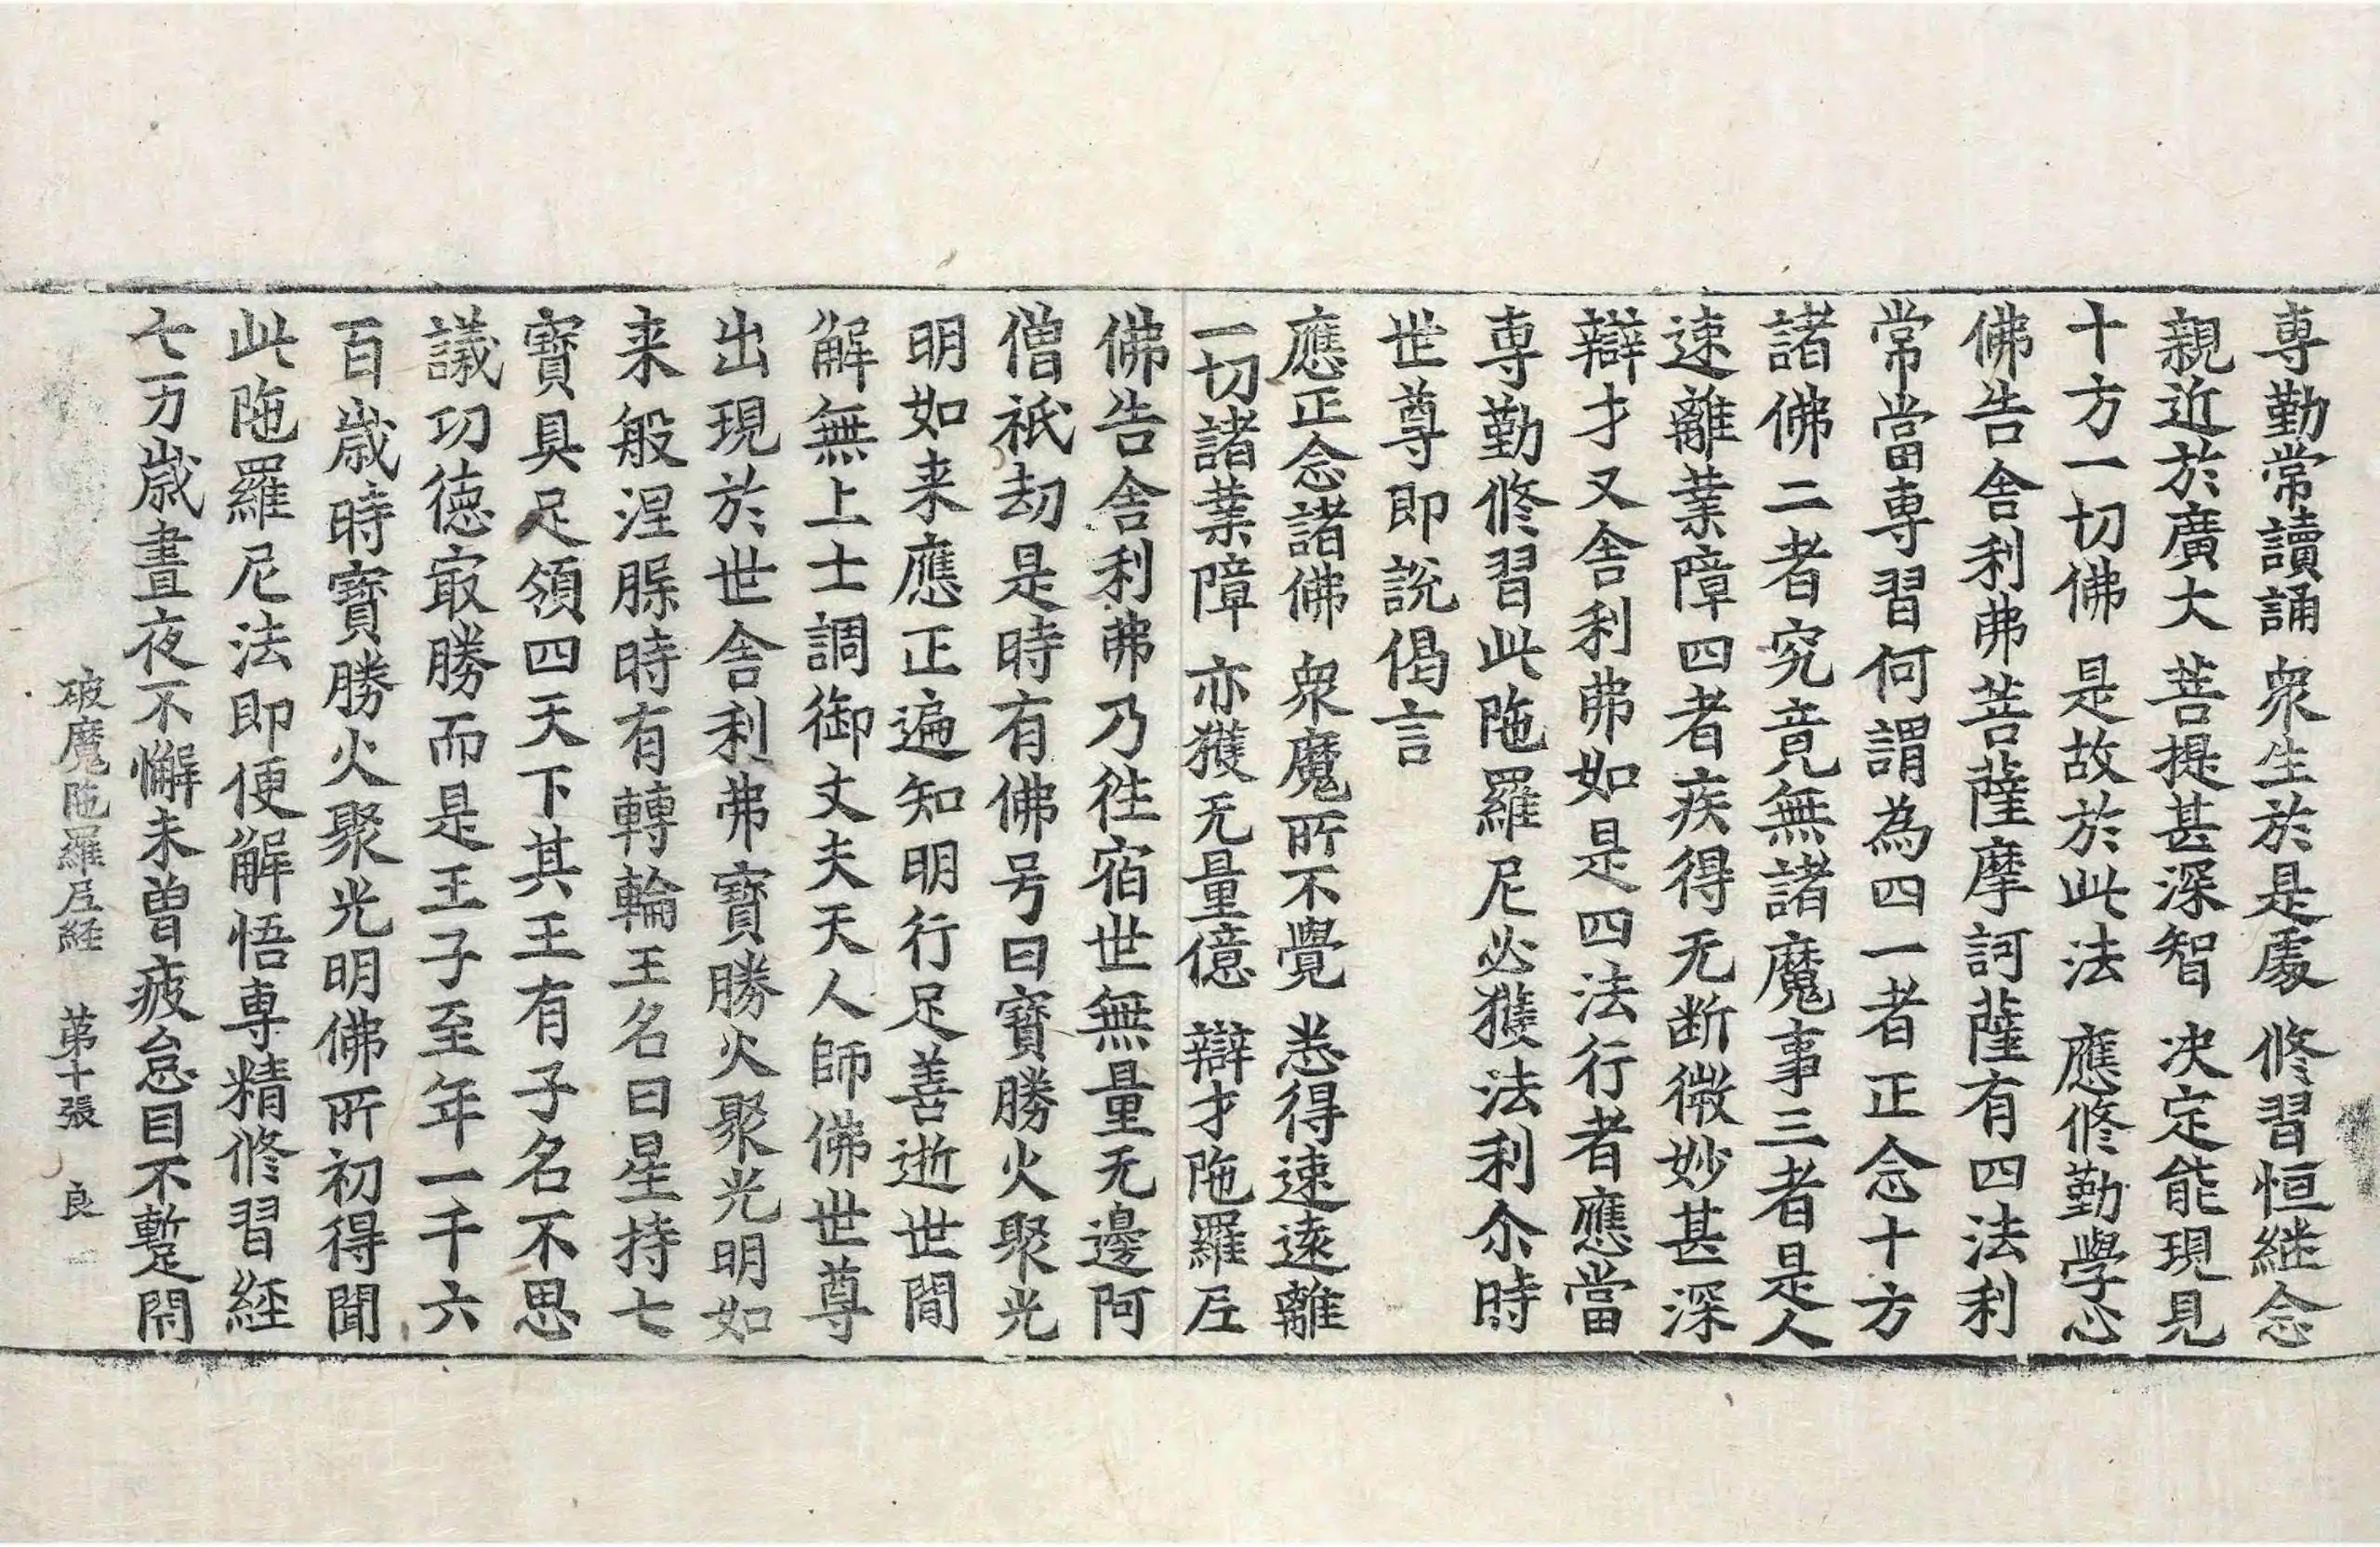 専勤常讀誦 衆生於是處 修習恒継念
親近於廣大 菩提甚深智 决定能現見
十方一切佛 是故於此法 應修勤學心
佛告舎利弗菩薩摩訶薩有四法利
常當専習何謂為四一者正念十方
諸佛二者究竟無諸魔事三者是人
速離業障四者疾得无断微妙甚深
辯才又舎利弗如是四法行者應當
専勤修習此陁羅尼必獲法利尒時
世尊即説偈言
應正念諸佛 衆魔所不覺 悉得速遠離
一切諸業障 亦獲无量億 辯才陁羅尼
佛告舎利弗乃徃宿世無量无邊阿
僧祇劫是時有佛号曰寶勝火聚光
明如来應正遍知明行足善逝世間
解無上士調御丈夫天人師佛世尊
出現於世舎利弗寶勝火聚光明如
来般涅槃時有轉輪王名曰星持七
寶具足領四天下其王有子名不思
議功徳冣勝而是王子至年一千六
百歲時寶勝火聚光明佛所初得聞
此陁羅尼法即便解悟専精修習經
七万歲晝夜不懈未曽疲怠目不蹔閇
破魔陁羅尼経 苐十張 良